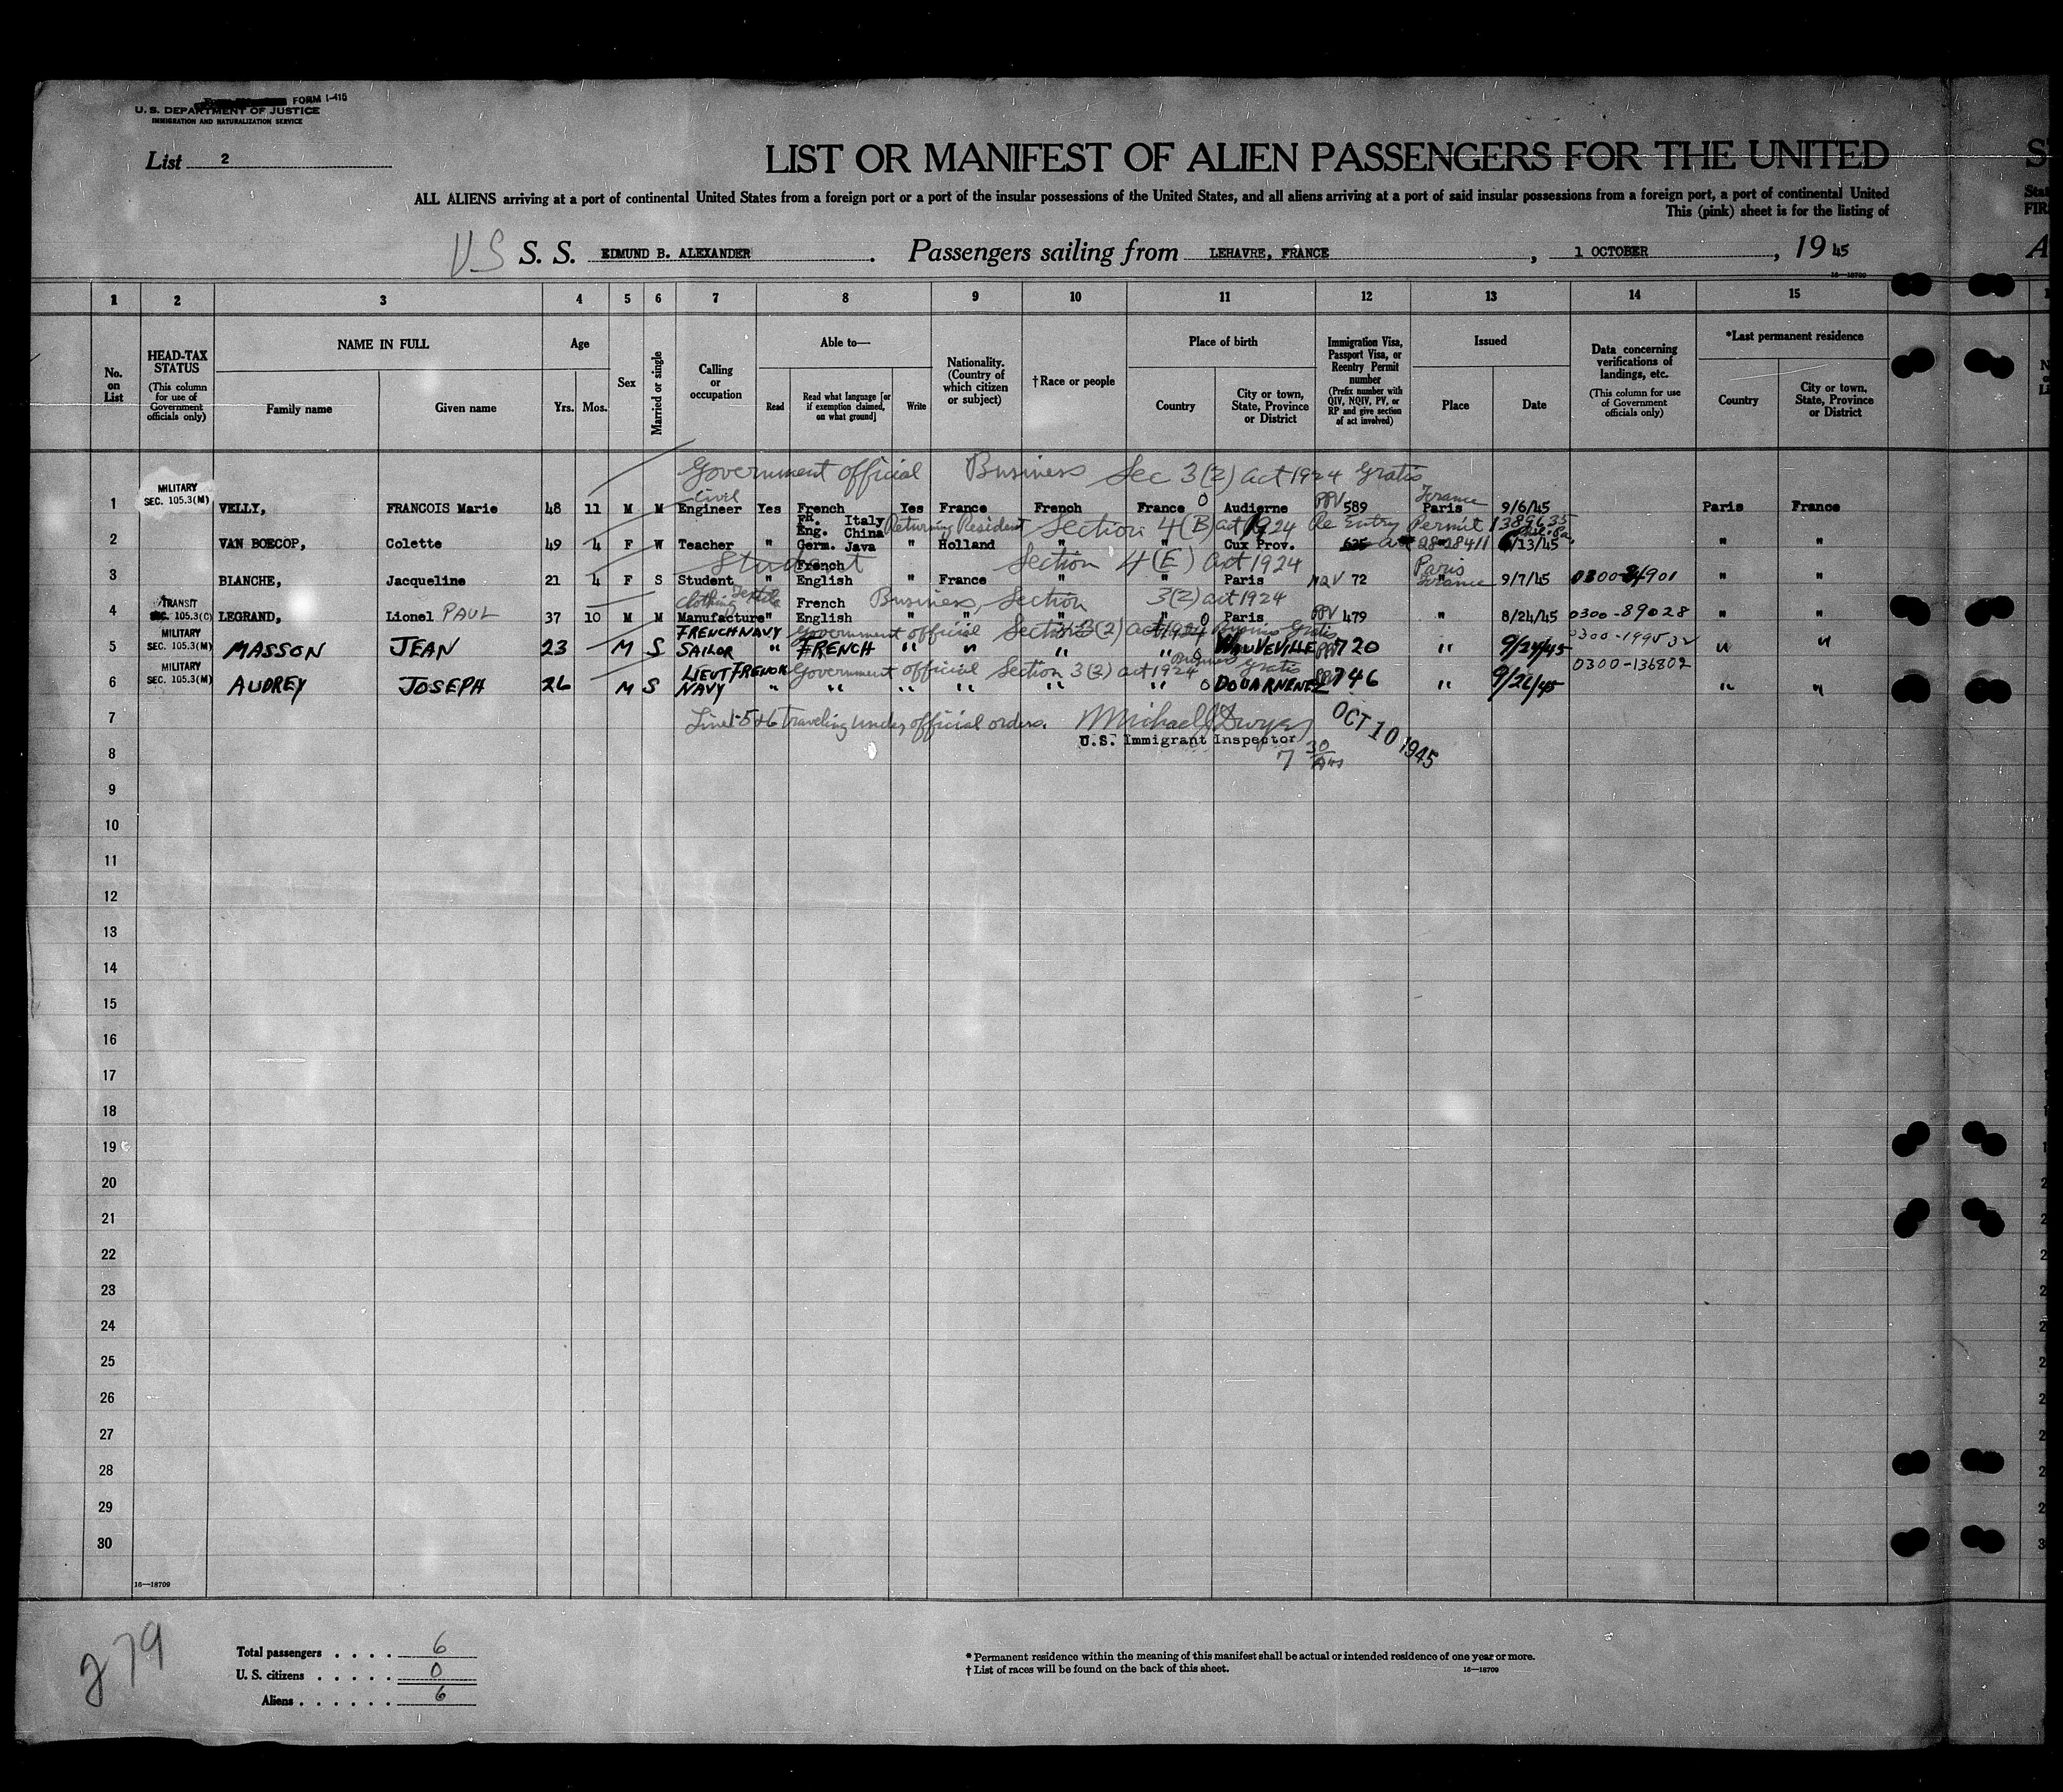 FORM I-415
U. S. DEPARTMENT OF JUSTICE
IMMIGRATION AND NATURALIZATION SERVICE
List 2
LIST OR MANIFEST OF ALIEN PASSENGERS FOR THE UNITED
ALL ALIENS arriving at a port of continental United States from a foreign port or a port of the insular possessions of the United States, and all aliens arriving at a port of said insular possessions from a foreign port, a port of continental United
This (pink) sheet is for the listing of
US S. S. EDMUND B. ALEXANDER . Passengers sailing from LEHAVRE, FRANCE , 1 OCTOBER , 19 45
16—18709
1 2 3 4 5 6 7 8 9 10 11 12 13 14 15
No. on List
HEAD-TAX STATUS (This column for use of Government officials only)
NAME IN FULL Family name Given name
Age Yrs. Mos.
Sex
Married or single
Calling or occupation
Able to— Read Read what language [or if exemption claimed, on what ground] Write
Nationality. (Country of which citizen or subject)
†Race or people
Place of birth Country City or town, State, Province or District
Immigration Visa, Passport Visa, or Reentry Permit number (Prefix number with QIV, NQIV, PV, or RP and give section of act involved)
Issued Place Date
Data concerning verifications of landings, etc. (This column for use of Government officials only)
*Last permanent residence Country City or town, State, Province or District
Government official Business Sec 3(2) act 1924 Gratis
1 MILITARY SEC. 105.3(M) VELLY, FRANCOIS Marie 48 11 M M Civil Engineer Yes French Yes France French France Audierne PPV 589 France Paris 9/6/45 Paris France
Returning Resident Section 4(B) act 1924 Re Entry Permit 1389635
2 VAN BOECOP, Colette 49 4 F W Teacher " FR. Italy Eng. China Germ. Java " Holland " " Cux Prov. 625 28-28411 6/13/45 " "
Student Section 4(E) act 1924
3 BLANCHE, Jacqueline 21 4 F S Student " French English " France " " Paris NQV 72 Paris France 9/7/45 0300-84901 " "
Business, Section 3(2) act 1924
4 TRANSIT SEC. 105.3(C) LEGRAND, Lionel PAUL 37 10 M M Clothing Textile Manufacture " French English " " " " Paris PPV 479 " 8/24/45 0300-89028 " "
Government official Section 3(2) act 1924 Business Gratis
5 MILITARY SEC. 105.3(M) MASSON JEAN 23 M S FRENCH NAVY SAILOR " FRENCH " " " " 720 " 9/24/45 " "
Government official Section 3(2) act 1924 Business Gratis
6 MILITARY SEC. 105.3(M) AUDREY JOSEPH 26 M S LIEUT FRENCH NAVY " " " " " " DOUARNENEZ 746 " 9/26/45 0300-136802 " "
7 Line 1-5+6 traveling under official orders. Michael J Dwyer OCT 10 1945
U.S. Immigrant Inspector
8 7 30
9
10
11
12
13
14
15
16
17
18
19
20
21
22
23
24
25
26
27
28
29
30
16—18709
279
Total passengers . . . . 6
U. S. citizens . . . . . 0
Aliens . . . . . . 6
* Permanent residence within the meaning of this manifest shall be actual or intended residence of one year or more.
† List of races will be found on the back of this sheet.
16—18709